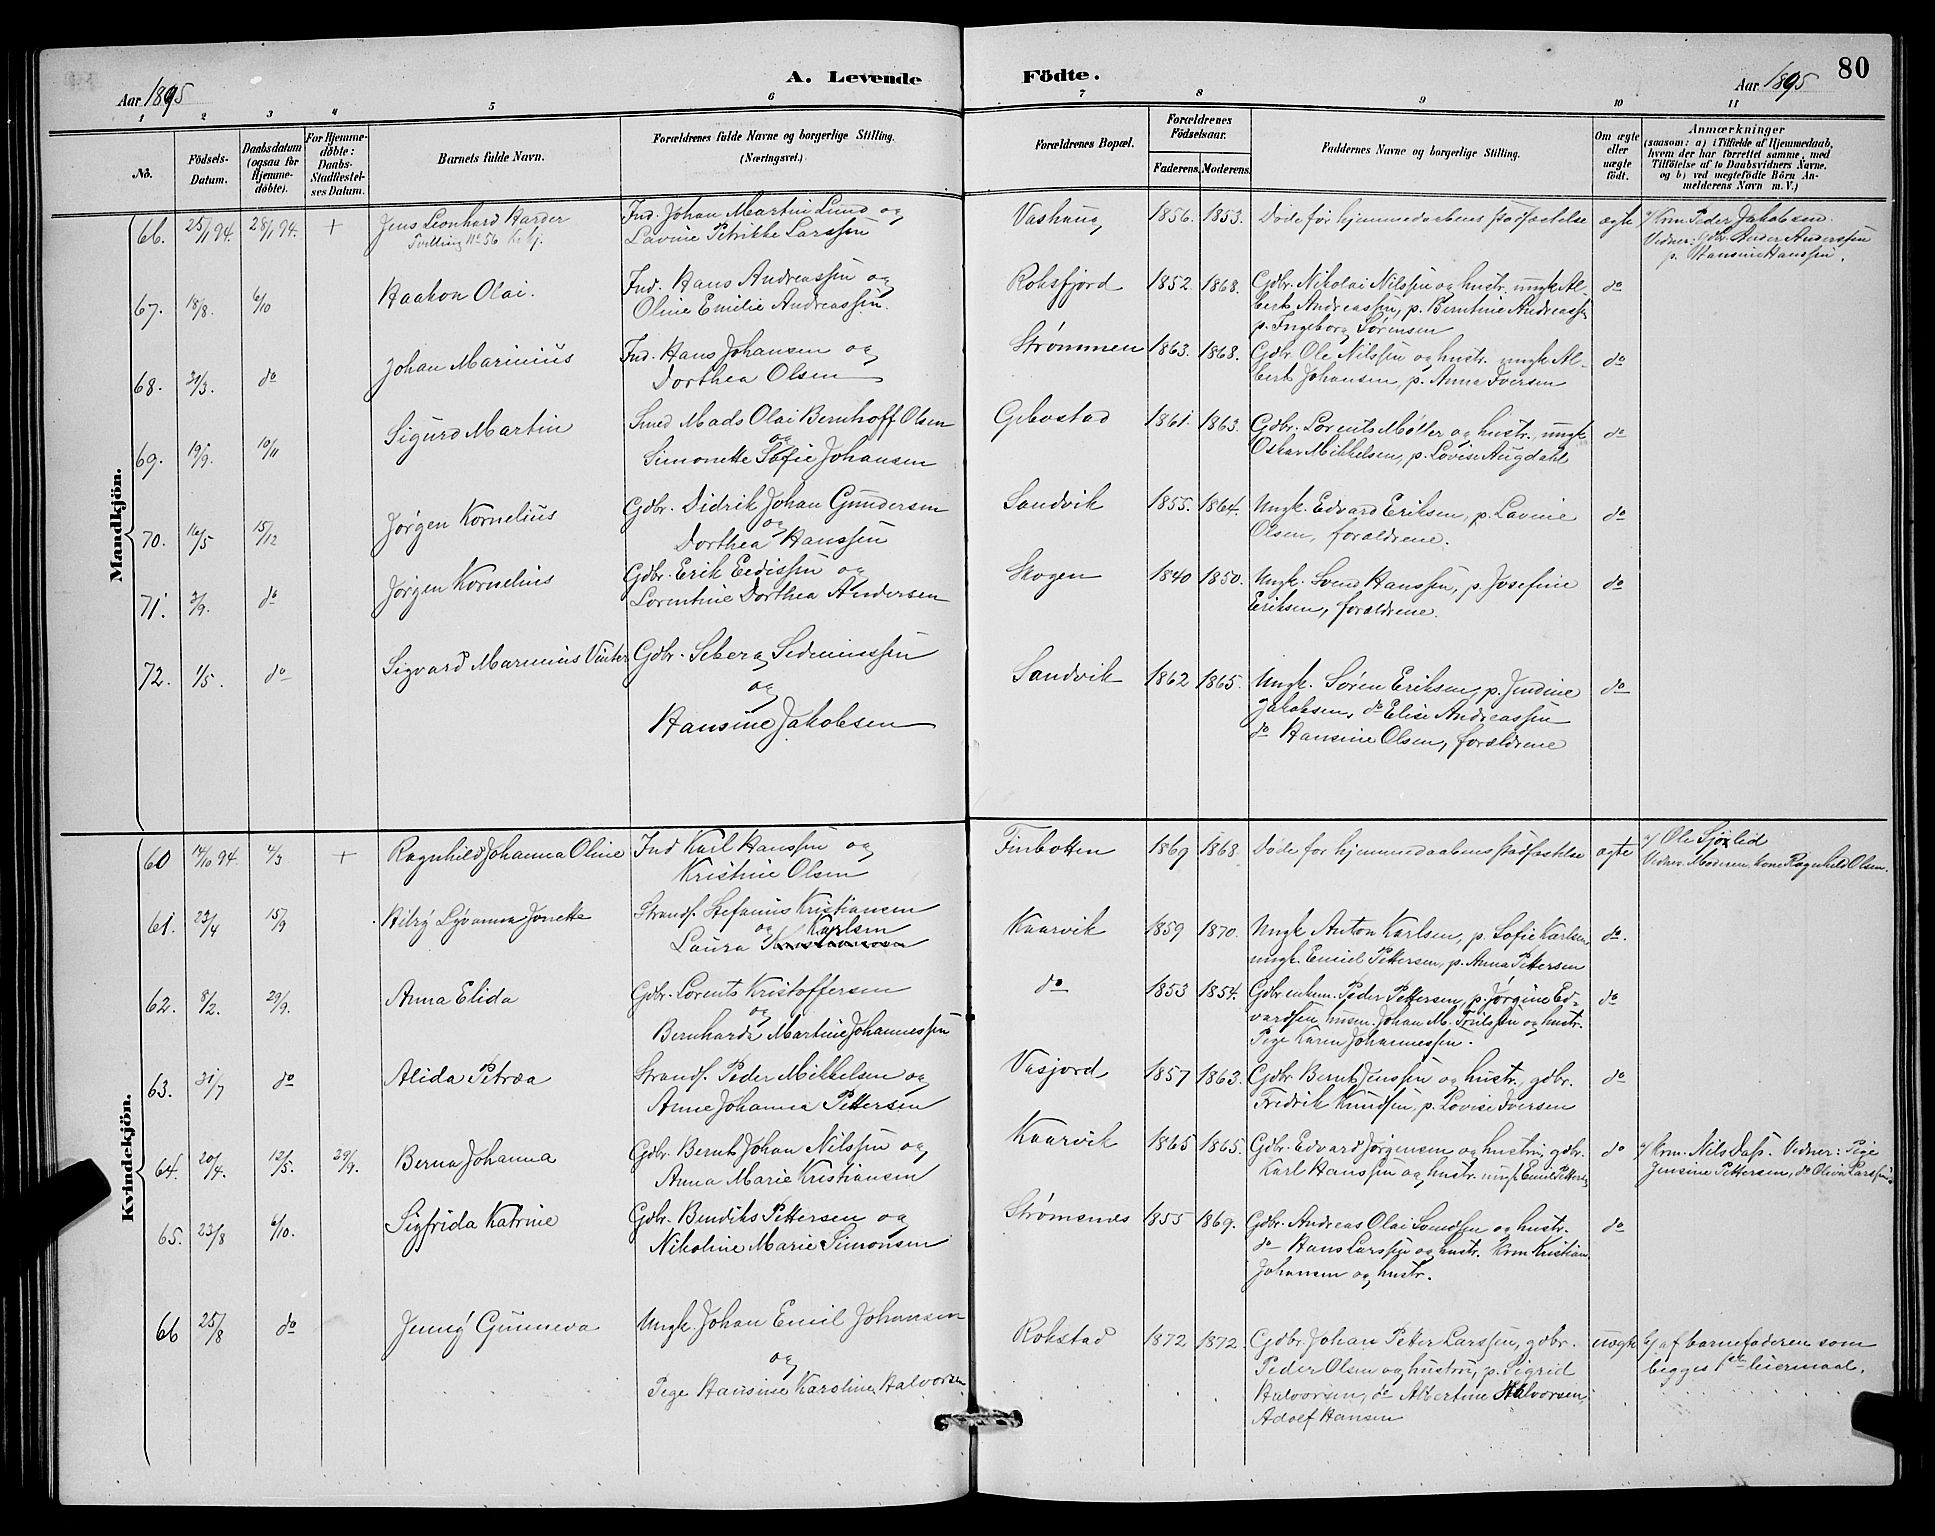 80
A. Levende Födte.
Aar 1895
Aar 1895
1 2 3 4 5 6 7 8 9 10 11
No.
Födsels-Datum.
Daabsdatum (ogsaa for Hjemmedöbte).
For Hjemmedöbte: Daabs-Stadfæstelses Datum.
Barnets fulde Navn.
Forældrenes fulde Navne og borgerlige Stilling. (Næringsvei.)
Forældrenes Bopæl.
Forældrenes Födselsaar.
Faderens. Moderens.
Faddernes Navne og borgerlige Stilling.
Om ægte eller uægte födt.
Anmærkninger
(saasom: a) i Tilfælde af Hjemmedaab, hvem der har forrettet samme, med Tilföielse af to Daabsvidners Navne. og b) ved uægtefödte Börn Anmelderens Navn m. V.)
Mandkjön.
66. 25/1 94. 28/1 94. + Jens Leonhard Harder Ind. Johan Martin Lund og Vashaug 1856. 1853. Døde før hjemmedaabens stadfæstelse ægte v/ Krm. Peder Jakobsen.
Tvilling No 56 Lavine Petrikke Larssen Vidner: gdbr. Peder Anderssen
p. Hansine Hanssen.
67. 18/8. 6/10 Haakon Olai. Ind. Hans Andreassen og Rossfjord 1852. 1868. Gdbr. Nikolai Nilssen og hustr. ungk. Al- do
Oline Emilie Andreassen. bert Andreassen, p. Berntine Andreassen
p. Ingeborg Sørensen
68. 30/3. do Johan Marinius Ind. Hans Johansen og Strømmen 1863. 1868. Gdbr. Ole Nilssen og hustr. ungk. Al- do
Dorthea Olsen bert Johansen, p. Anna Iversen
69. 19/9. 10/11 Sigurd Martin Smed Mads Olai Bernhoff Olsen Gibostad 1861. 1863. Gdbr. Lorents Møller og hustr. ungk. do
og
Simonette Sofie Johansen Oskar Mikkelsen, p. Lovise Augdahl
70. 16/5 15/12 Jørgen Kornelius Gdbr. Didrik Johan Gundersen Sandvik 1855. 1864. Ungk. Edvard Eriksen, p. Lavine do
og
Dorthea Hanssen Olsen, forældrene.
71. 3/9. do Jørgen Kornelius Gdbr. Erik Eedissen og Skogen 1840 1850. Ungk. Svend Hanssen, p. Josefine do
Lorentine Dorthea Andersen Eriksen, forældrene.
72. 1/5. do Sigvard Marinius Vinter Gdbr. Seberg Sedeniussen Sandvik 1862 1865. Ungk. Søren Eriksen, p. Jendine do
og Jakobsen, do Elise Andreassen
Hansine Jakobsen do Hansine Olsen, forældrene
Kvindekjön.
60 14/10 94. 4/3 + Ragnhild Johanna Oline Ind Karl Hanssen og Finbotten 1869 1868 Døde før hjemmedaabens stadfæstelse ægte v/ Ole Sjølid
Kristine Olsen Vidner: Moderen, kone Ragnhild Olsen.
61. 23/4 15/9 Hilry Lyvanna Jonette Strands. Stefanus Kristiansen Kaarvik 1859 1870. Ungk Anton Karlsen, p. Sofie Karlsen, do.
og Karlsen
Laura Kristiansen ungk. Emiel Pettersen, p. Anna Pettersen
62. 8/2. 29/9. Anna Elida Gdbr. Lorents Kristoffersen do 1853 1854. Gdbr enkem. Peder Pettersen, p. Jørgine Ed- do
og vardsen, husm. Johan M. Truilssen og hustr.
Bernharda Martine Johannessen Pige Karen Johannessen.
63. 31/7 do Alida Petrea Strands. Peder Mikkelsen og Vasjord 1857 1863. Gdbr. Bernt Jenssen og hustr., gdbr. do
Anne Johanna Pettersen Fredrik Knudsen, p. Lovise Iversen
64. 20/4. 12/5. 29/9. Berna Johanna Gdbr. Bernt Johan Nilssen og Kaarvik 1865 1865. Gdbr. Edvard Jørgensen og hustru, gdbr. do v/ Krm. Nils Dass. Vidner: Pige
Anna Marie Kristiansen Karl Hanssen og hustr. ungk. Emil Pettersen Jensine Pettersen, do Oliva Larssen
65. 23/8 6/10. Sigfrida Katrine Gdbr. Bendiks Pettersen og Strømsnes 1855 1869. Gdbr. Andreas Olai Svendsen og hustr. do
Nikoline Marie Simonsen do Hans Larssen og hustr. Krm Kristian
Johansen og hustr.
66 25/8 do Jenny Gunneva Ungk. Johan Emil Johansen Rokstad 1872 1872. Gdbr. Johan Peter Larssen, gdbr. uægte G/ af barnefaderen som
og Peder Olsen og hustru, p. Sigrid begges 1ste leiermaal.
Pige Hansine Karoline Halvorsen Halvorsen, do Albertine Halvorsen,
Adolf Hansen